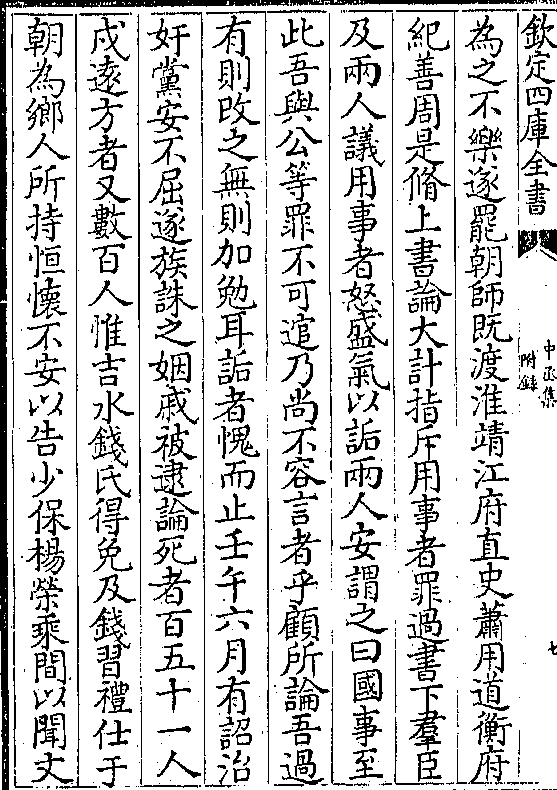 欽定四庫全書
中丞集
附錄
七
為之不樂遂罷朝師既渡淮靖江府直史蕭用道衡府
紀善周是脩上書論大計指斥用事者罪過書下羣臣
及兩人議用事者怒盛氣以詬兩人安謂之曰國事至
此吾與公等罪不可逭乃尚不容言者乎顧所論吾過
有則改之無則加勉耳詬者愧而止壬午六月有詔治
奸黨安不屈遂族誅之姻戚被逮論死者百五十一人
戍遠方者又數百人惟吉水錢氏得免及錢習禮仕于
朝為鄉人所持恒懷不安以告少保楊榮乘間以聞文